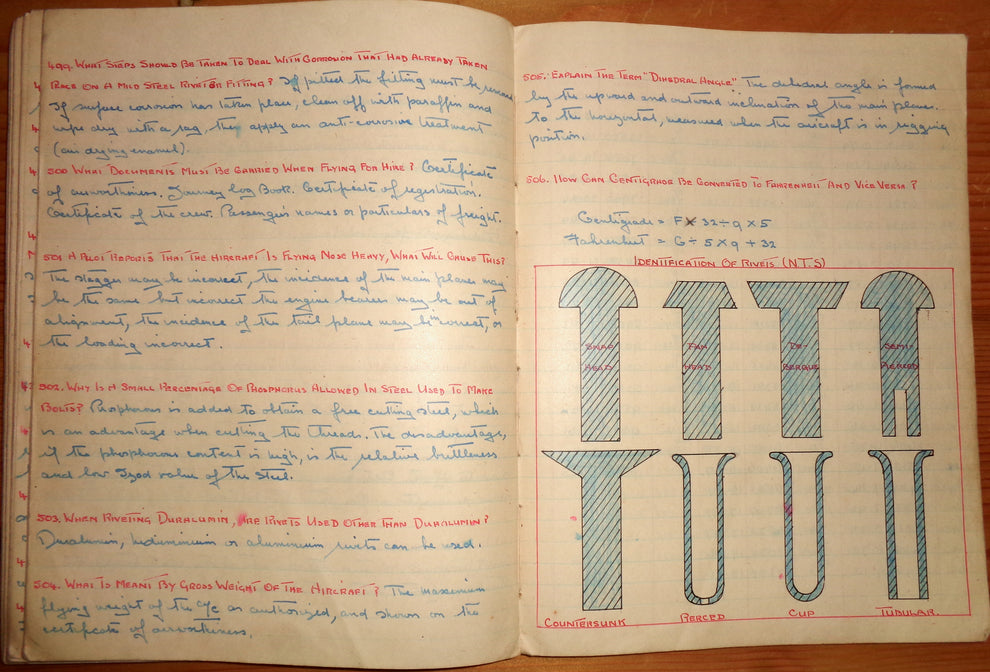 499. WHAT STEPS SHOULD BE TAKEN TO DEAL WITH CORROSION THAT HAD ALREADY TAKEN
PLACE ON A MILD STEEL RIVET OR FITTING? If pitted the fitting must be
If surface corrosion has taken place, clean off with paraffin and
wipe dry with a rag, then apply an anti-corrosive treatment
(air drying enamel).
500 WHAT DOCUMENTS MUST BE CARRIED WHEN FLYING FOR HIRE? Certificate
of airworthiness. Journey log Book. Certificate of registration.
Certificate of the crew. Passengers names or particulars of freight.
501 A PILOT REPORTS THAT THE AIRCRAFT IS FLYING NOSE HEAVY, WHAT WILL CAUSE THIS?
The stagger may be incorrect, the incidence of the main planes may
be the same but incorrect the engine bearers may be out of
alignment, the incidence of the tail plane may be incorrect, or
the loading incorrect.
502. WHY IS A SMALL PERCENTAGE OF PHOSPHORUS ALLOWED IN STEEL USED TO MAKE
BOLTS? Phosphorous is added to obtain a free cutting steel, which
is an advantage when cutting the threads. The disadvantage,
if the phosphorous content is high, is the relative brittleness
and low Izod value of the steel.
503. WHEN RIVETING DURALUMIN, ARE RIVETS USED OTHER THAN DURALUMIN?
Duralumin, hiduminium or aluminium rivets can be used.
504. WHAT IS MEANT BY GROSS WEIGHT OF THE AIRCRAFT? The maximum
flying weight of the A/c as authorized, and shown on the
certificate of airworthiness.
505. EXPLAIN THE TERM "DIHEDRAL ANGLE" The dihedral angle is formed
by the upward and outward inclination of the main planes.
to the horizontal, measured when the aircraft is in rigging
position.
506. HOW CAN CENTIGRADE BE CONVERTED TO FAHRENHEIT AND VICE VERSA?
Centigrade = F 32 ÷ 9 × 5
Fahrenheit = C ÷ 5 × 9 + 32
IDENTIFICATION OF RIVETS (N.T.S)
SNAP HEAD
PAN HEAD
DE-BERGUE
SEMI-PIERCED
COUNTERSUNK
PIERCED
CUP
TUBULAR.